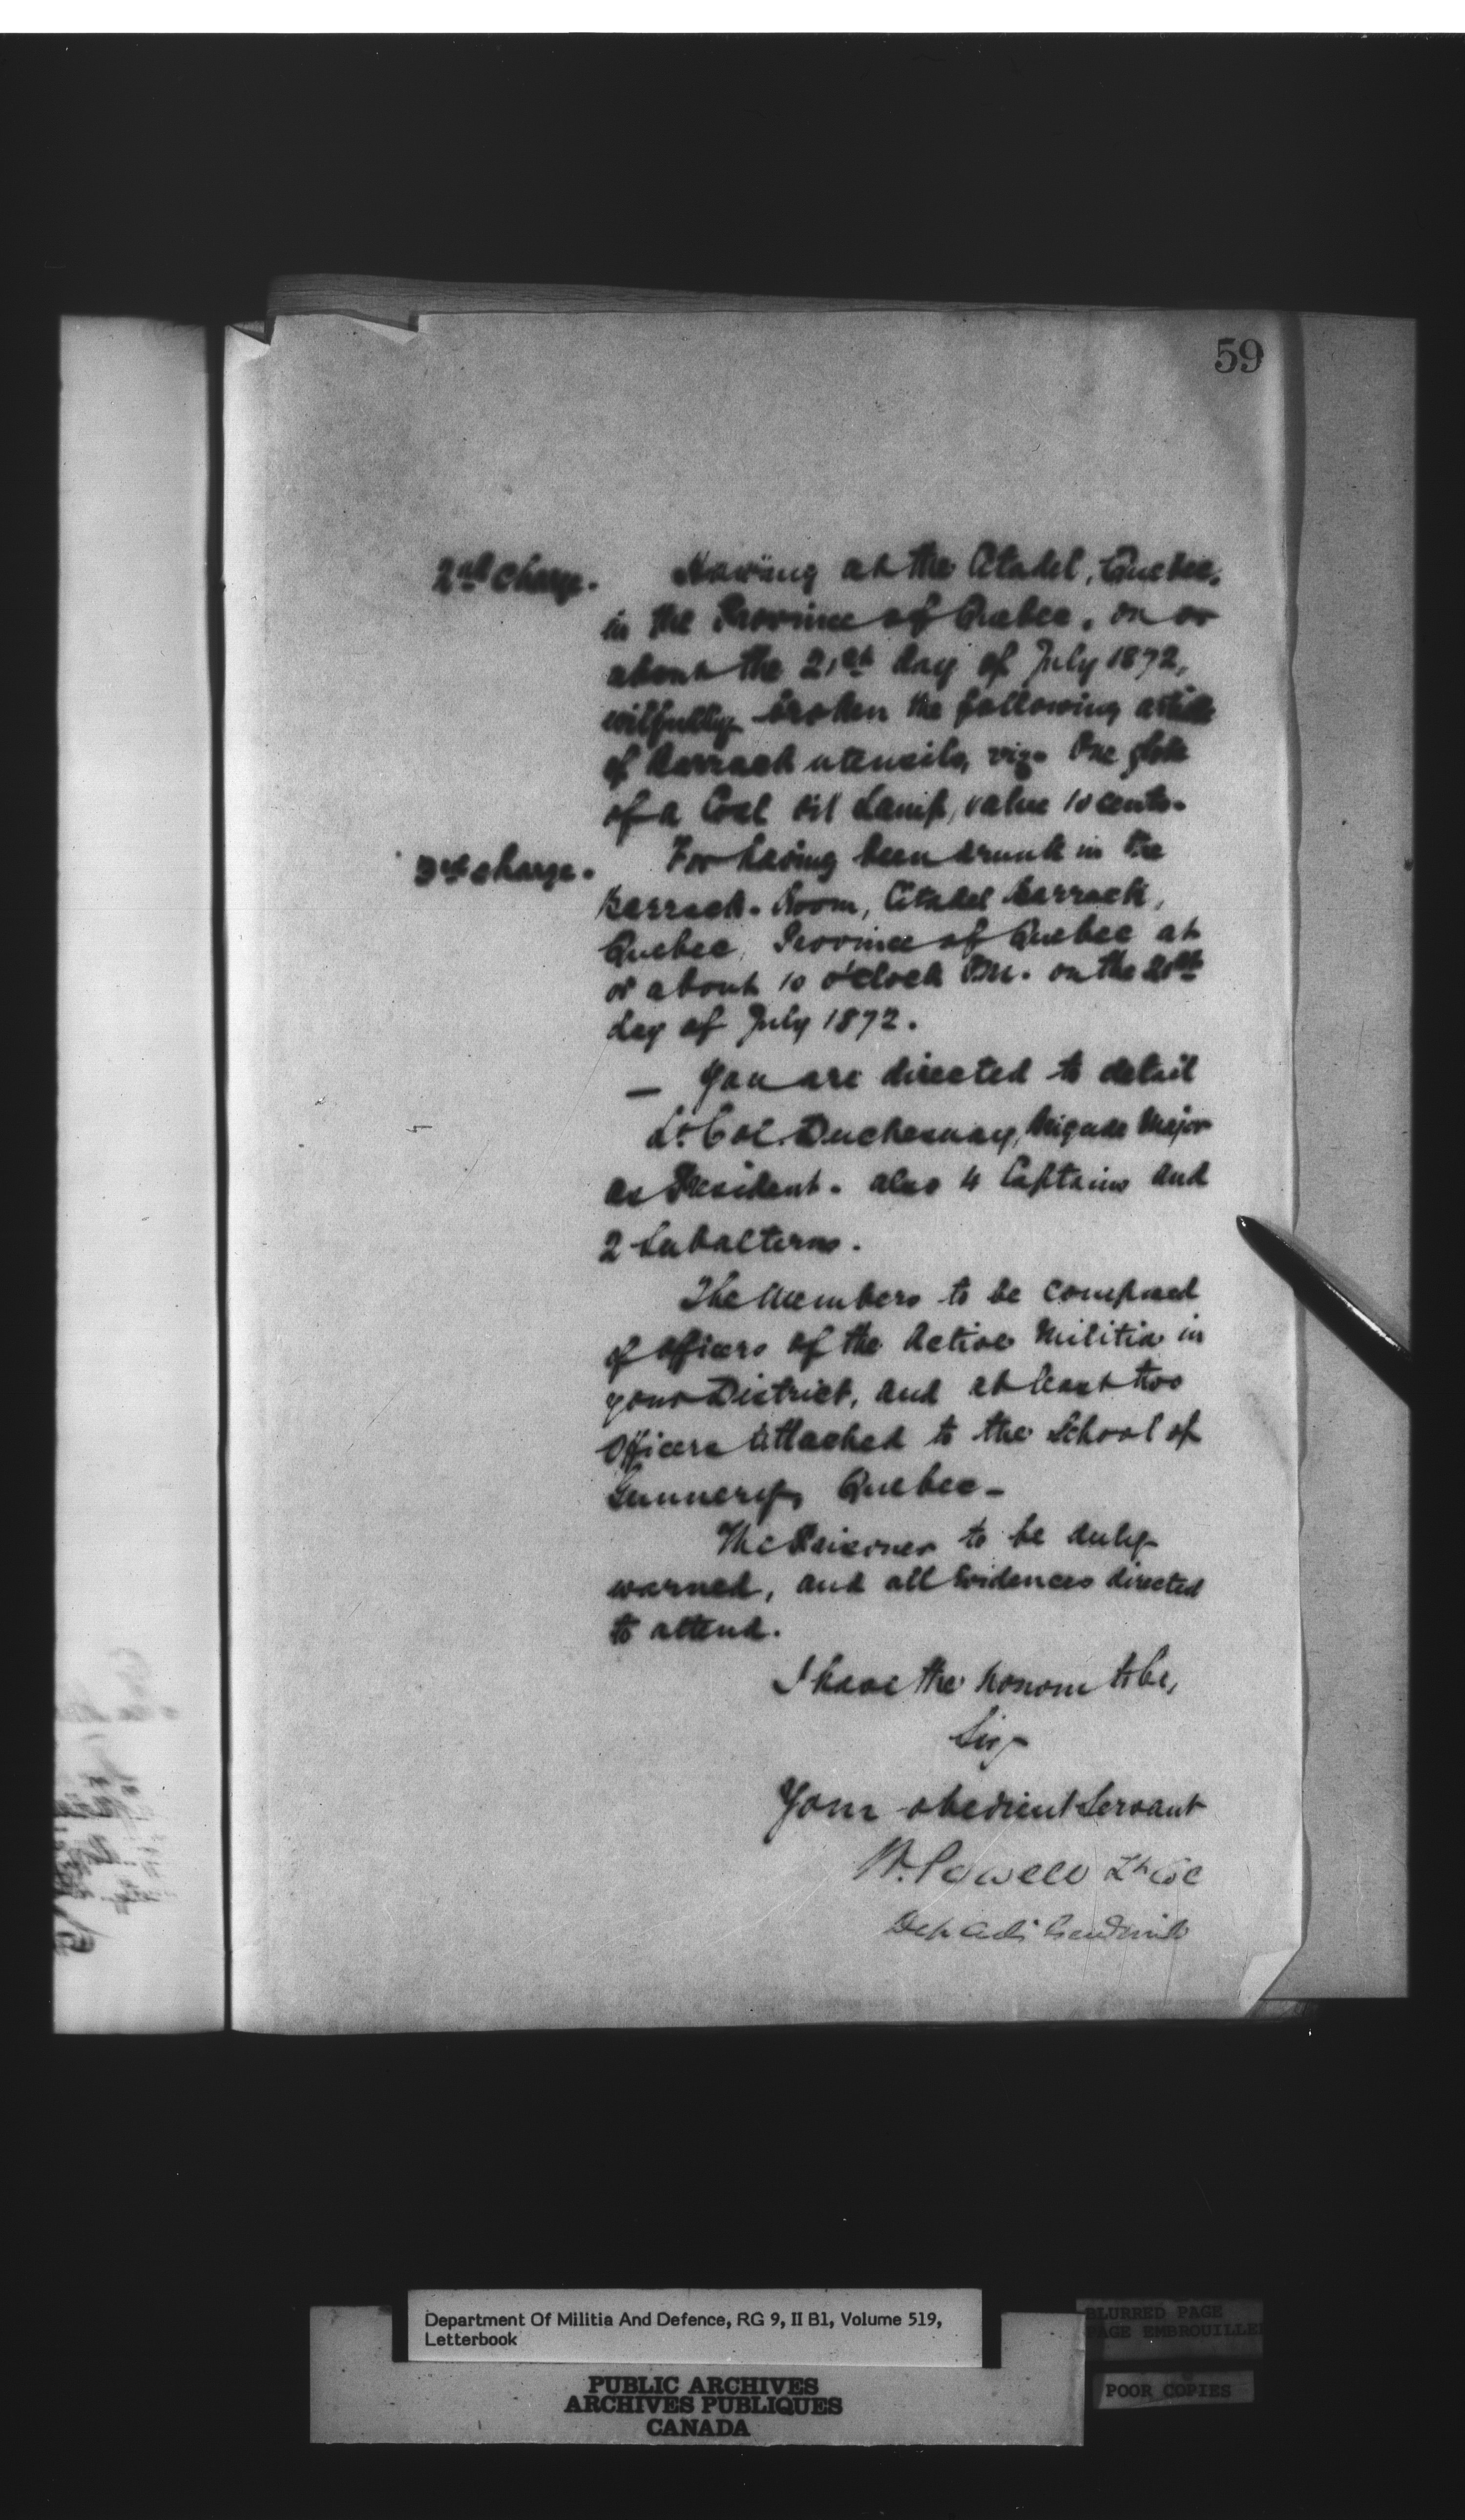 59
2nd Charge. Having at the Citadel, Quebec,
in the Province of Quebec, on or
about the 21st day of July 1872,
wilfully broken the following article
of Barrack utensils, viz. One globe
of a Coal Oil Lamp, value 10 cents.
3rd Charge. For having been drunk in the
Barrack-Room, Citadel Barrack,
Quebec, Province of Quebec at
or about 10 o'clock P.M. on the
day of July 1872.
— You are directed to detail
Lt. Col. Duchesnay, Brigade Major
as President. also 4 Captains and
2 Subalterns.
The Members to be composed
of Officers of the Active Militia in
your District, and at least two
Officers attached to the School of
Gunnery, Quebec —
The Prisoner to be duly
warned, and all Evidences directed
to attend.
I have the honour to be,
Sir,
Your obedient Servant
W. Powell Lt Col
Dep Adj Gen
Department Of Militia And Defence, RG 9, II B1, Volume 519,
Letterbook
PUBLIC ARCHIVES
ARCHIVES PUBLIQUES
CANADA
BLURRED PAGE
PAGE EMBROUILLEE
POOR COPIES